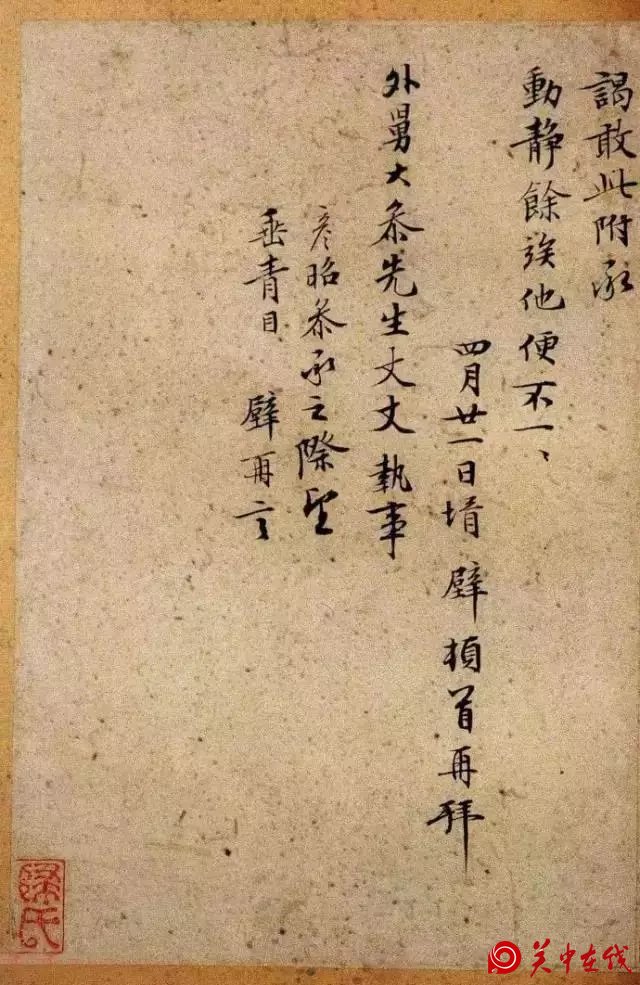 謁敢此附承
動静餘俟他便不一、
四月廿一日壻璧頓首再拜
外舅大叅先生丈丈執事
彦昭叅承之際望
垂青目 璧再言
氏
关中在线